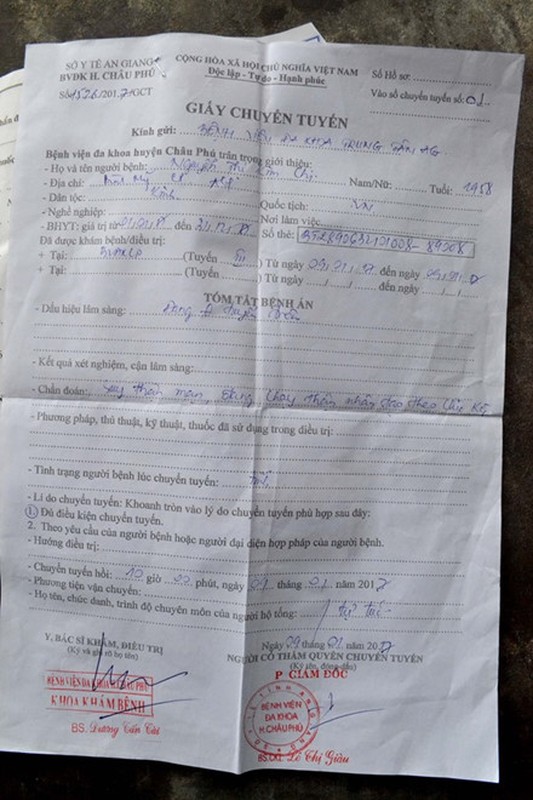 SỞ Y TẾ AN GIANG
BVĐK H. CHÂU PHÚ
Số: 1526/2017/GCT
CỘNG HÒA XÃ HỘI CHỦ NGHĨA VIỆT NAM
Độc lập - Tự do - Hạnh phúc
Số Hồ sơ:
Vào sổ chuyển tuyến số: 01
GIẤY CHUYỂN TUYẾN
Kính gửi: BỆNH VIỆN ĐA KHOA TRUNG TÂM AG
Bệnh viện đa khoa huyện Châu Phú trân trọng giới thiệu:
- Họ và tên người bệnh: Nguyễn Thị Kim Chi Nam/Nữ: Tuổi: 1958
- Địa chỉ:
- Dân tộc: Kinh Quốc tịch: VN
- Nghề nghiệp: Nơi làm việc
- BHYT: giá trị từ 01.01.17 đến 31.12.17 Số thẻ:
Đã được khám bệnh/điều trị:
+ Tại: (Tuyến III) Từ ngày 09.01.17 đến ngày
+ Tại: (Tuyến ) Từ ngày / / đến ngày / /
TÓM TẮT BỆNH ÁN
- Dấu hiệu lâm sàng:
- Kết quả xét nghiệm, cận lâm sàng:
- Chẩn đoán: Suy thận mạn đang chạy thận nhân tạo theo chu kỳ
- Phương pháp, thủ thuật, kỹ thuật, thuốc đã sử dụng trong điều trị:
- Tình trạng người bệnh lúc chuyển tuyến: tỉnh
- Lí do chuyển tuyến: Khoanh tròn vào lý do chuyển tuyến phù hợp sau đây:
1. Đủ điều kiện chuyển tuyến.
2. Theo yêu cầu của người bệnh hoặc người đại diện hợp pháp của người bệnh.
- Hướng điều trị:
- Chuyển tuyến hồi: 10 giờ 00 phút, ngày 09 tháng 01 năm 2017
- Phương tiện vận chuyển:
- Họ tên, chức danh, trình độ chuyên môn của người hộ tống: tự túc
Ngày 09 tháng 01 năm 2017
Y, BÁC SĨ KHÁM, ĐIỀU TRỊ
(Ký và ghi rõ họ tên)
NGƯỜI CÓ THẨM QUYỀN CHUYỂN TUYẾN
(Ký tên, đóng dấu)
P GIÁM ĐỐC
BỆNH VIỆN ĐA KHOA H. CHÂU PHÚ
KHOA KHÁM BỆNH
BỆNH VIỆN
ĐA KHOA
H.CHÂU PHÚ
BS. Dương Tấn Tài
BS.CKI. Lê Thị Giàu